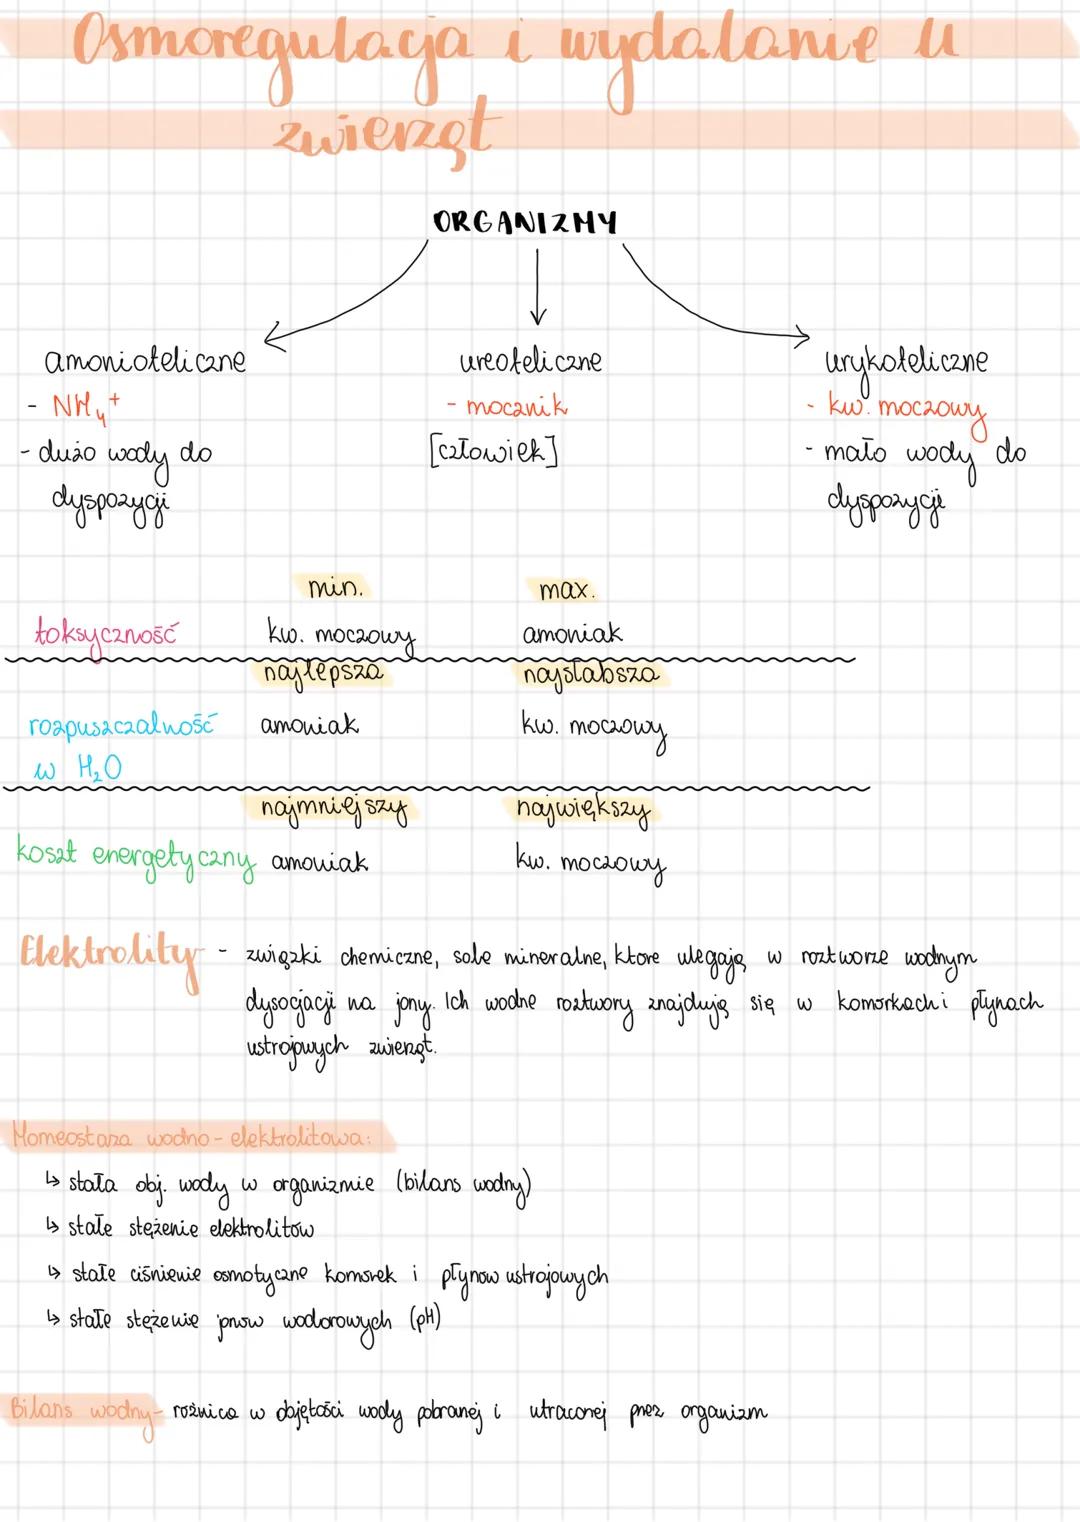 Osmoregulacja i wydalanie u
zwierząt
ORGANIZMY
amonioteliczne
- NH₄⁺
- dużo wody do
dyspozycji
ureoteliczne
- mocznik
[człowiek]
urykoteliczne
- kw. moczowy
- mało wody do
dyspozycji
min. max.
toksyczność kw. moczowy amoniak
najlepsza najsłabsza
rozpuszczalność amoniak kw. moczowy
w H₂O
najmniejszy największy
koszt energetyczny amoniak kw. moczowy
Elektrolity - związki chemiczne, sole mineralne, które ulegają w roztworze wodnym
dysocjacji na jony. Ich wodne roztwory znajdują się w komórkach i płynach
ustrojowych zwierząt.
Homeostaza wodno-elektrolitowa:
↳ stała obj. wody w organizmie (bilans wodny)
↳ stałe stężenie elektrolitów
↳ stałe ciśnienie osmotyczne komórek i płynów ustrojowych
↳ stałe stężenie jonów wodorowych (pH)
Bilans wodny - różnica w objętości wody pobranej i utraconej przez organizm